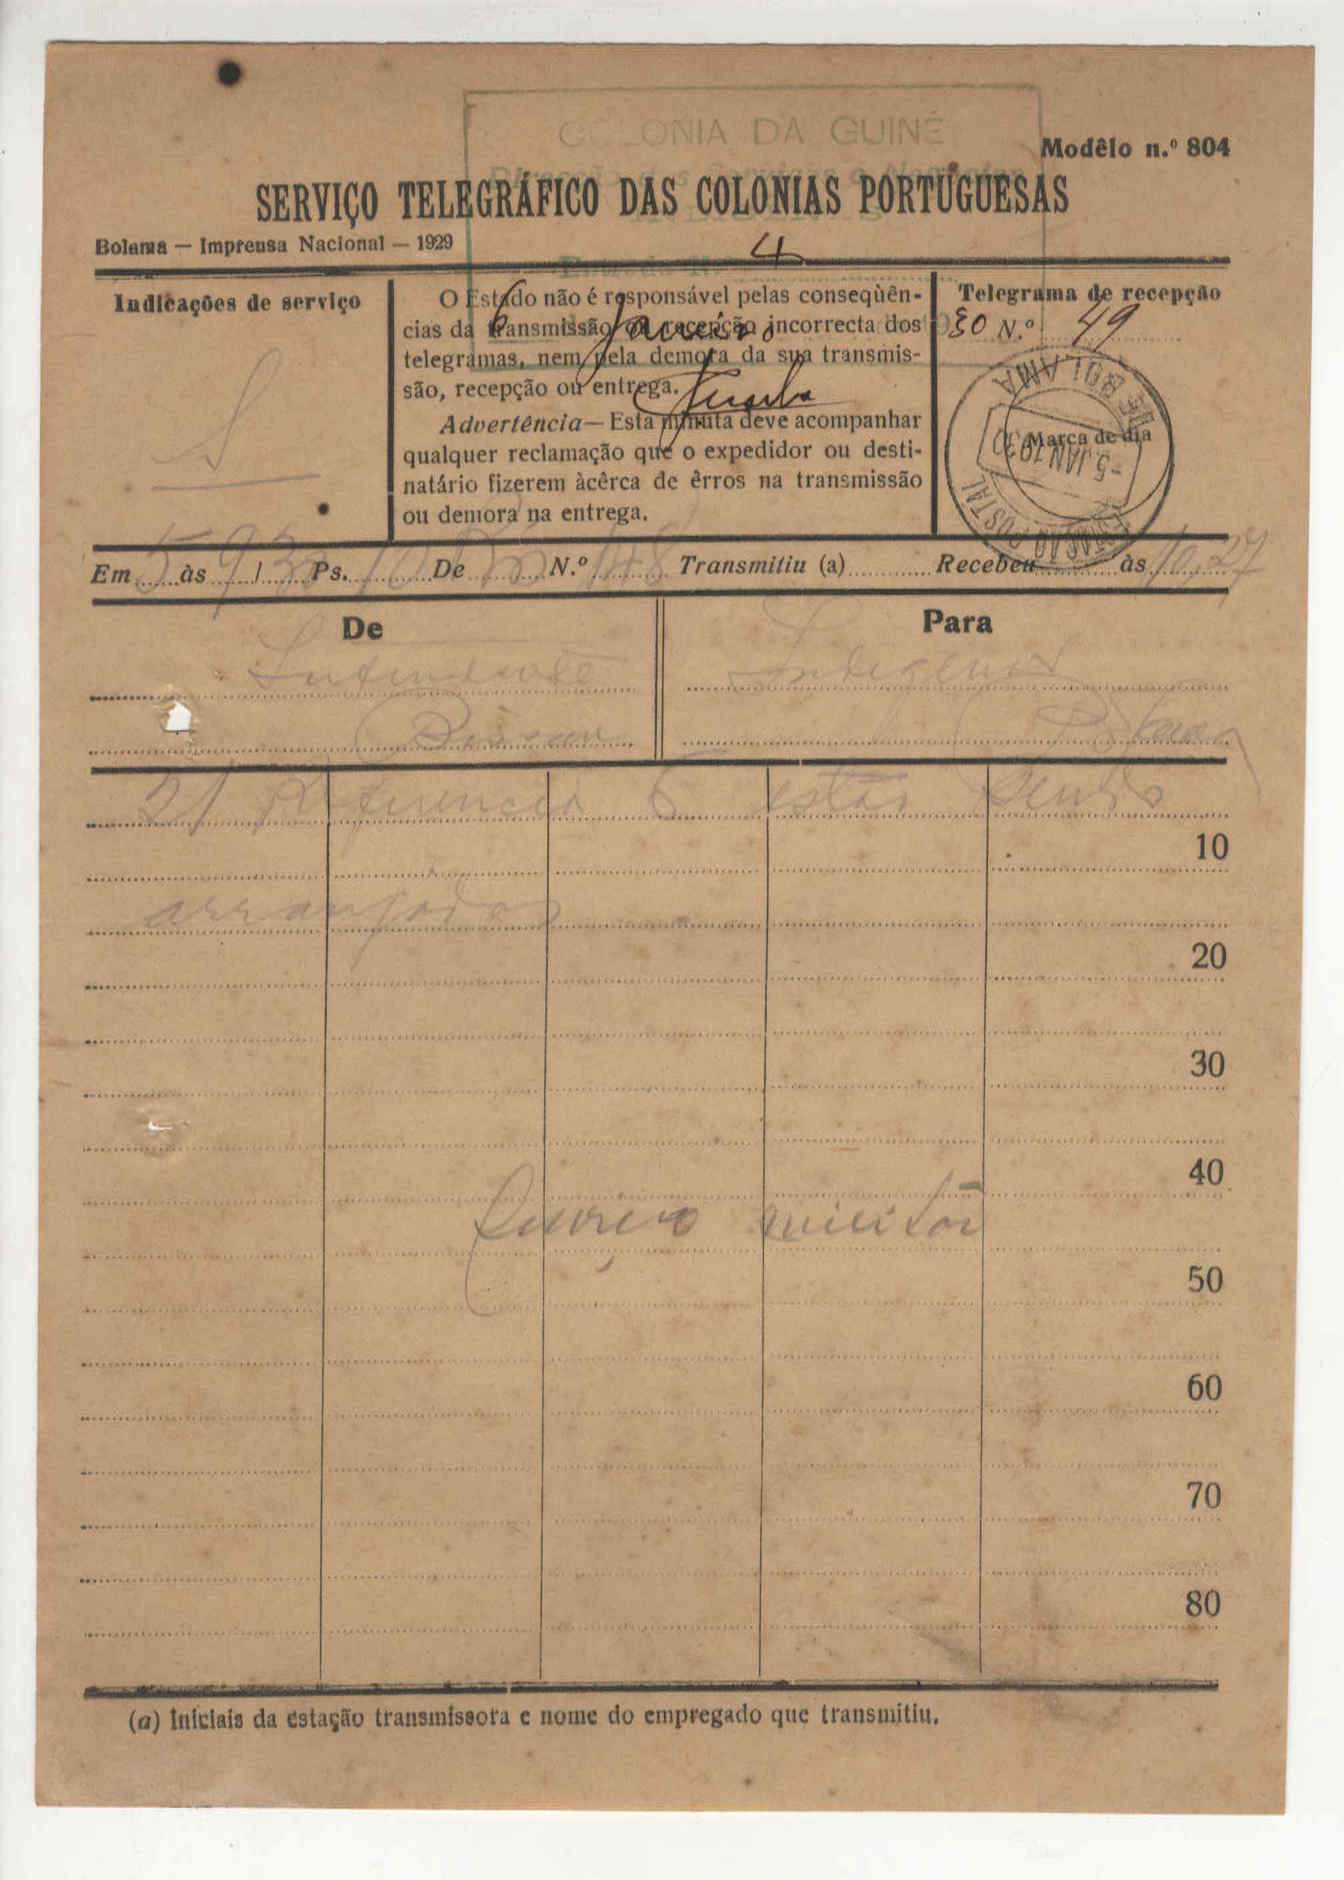 COLONIA DA GUINÉ
Modêlo n.º 804
SERVIÇO TELEGRÁFICO DAS COLONIAS PORTUGUESAS
Bolama — Imprensa Nacional — 1929
4
Indicações de serviço
S
O Estado não é responsável pelas conseqùên-
cias da transmissão ou recepção incorrecta dos
telegramas, nem pela demora da sua transmis-
são, recepção ou entrega.
Advertência — Esta minuta deve acompanhar
qualquer reclamação que o expedidor ou desti-
natário fizerem àcêrca de êrros na transmissão
ou demora na entrega.
6 Janeiro 30
Telegrama de recepção
N.º 49
Marca de dia
ESTAÇÃO POSTAL DE BOLAMA
-5.JAN.1930
Em 5 às 930 Ps. 10 De N.º 48 Transmitiu (a) Recebeu às 10,27
De
Para
Intendente
Indigenas
Bissau
Bolama
21 Referencia 6 estão sendo
10
arranjados
20
30
40
50
60
70
80
(a) Iniciais da estação transmissora e nome do empregado que transmitiu.